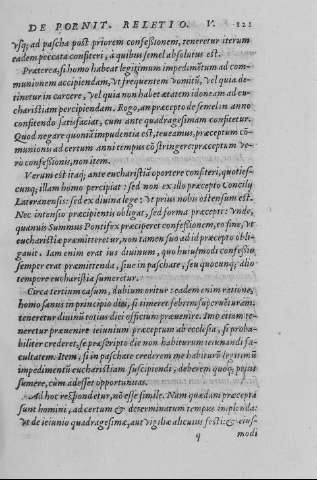 DE POENIT. RELETIO. V. 121
vsq; ad pascha post priorem confeßionem, teneretur iterum
eadem peccata confiteri, à quibus semel absolutus est.
Præterea, si homo habeat legitimum impedimẽtum ad com-
munionem accipiendam, vt frequentem vomitũ, vel quia de-
tinetur in carcere, vel quia non habet ætatem idoneam ad eu-
charistiam percipiendam. Rogo, an præcepto de semel in anno
confitendo satisfaciat, cum ante quadragesimam confitetur.
Quod negare quoniã impudentia est, teneamus, præceptum cõ-
munionis ad certum anni tempus cõstringere: præceptum ve-
ro confeßionis, non item.
Verum est itaq; ante eucharistiã oportere confiteri, quoties-
cunq; illam homo percipiat: sed non ex illo præcepto Concilij
Lateranensis: sed ex diuina lege: vt prius nobis ostensum est.
Nec intensio præcipientis obligat, sed forma præcepti: Vnde,
quamuis Summus Pontifex præciperet confeßionem, eo fine, vt
eucharistiæ præmitteretur, non tamen suo ad id præcepto obli-
gauit. Iam enim erat ius diuinum, quo huiusmodi confeßio
semper erat præmittenda, siue in paschate, seu quocunq; alio
tempore eucharistia sumeretur.
Circa tertium casum, dubium oritur: eadem enim ratione,
homo sanus in principio diei, si timeret febrim superuenturam,
teneretur diuinũ totius diei officium præuenire. Imo etiam te-
neretur præuenire ieiunium præceptum ab ecclesia, si proba-
biliter crederet, se postridie die non habiturum ieiunandi fa-
cultatem. Item, si in paschate crederem me habiturũ legitimũ
impedimentũ eucharistiam suscipiendi, deberem quoq; prius
sumere, cùm adesset opportunitas.
Ad hoc respondetur, nõ esse simile. Nam quædam præcepta
sunt homini, ad certum & determinatum tempus implenda:
vt de ieiunio quadragesimæ, aut vigiliæ alicuius festi: & eius-
q modi